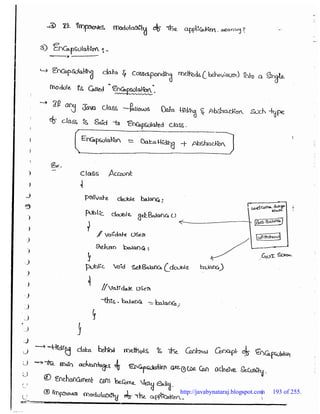 → It Improves modularity of the application.
3) Encapsulation :-
↳ Encapsulating data & corresponding methods (behaviour) into a single
module is called "Encapsulation".
→ If any Java class follows Data Hiding & Abstraction such type
of class is said to Encapsulated class.
Encapsulation = DataHiding + Abstraction
Ex:
class Account
{
private double balance;
public double getBalance()
{
// validate user
return balance;
}
public void setBalance(double balance)
{
// validate user
this.balance = balance;
}
}
GUI Screen
→ Hiding data behind methods is the Central Concept of Encapsulation
→ The main advantages of Encapsulation are ① we can achieve security.
② Enhancement can become very easy.
③ Improves modularity of the application.
http://javabynataraj.blogspot.com 193 of 255.